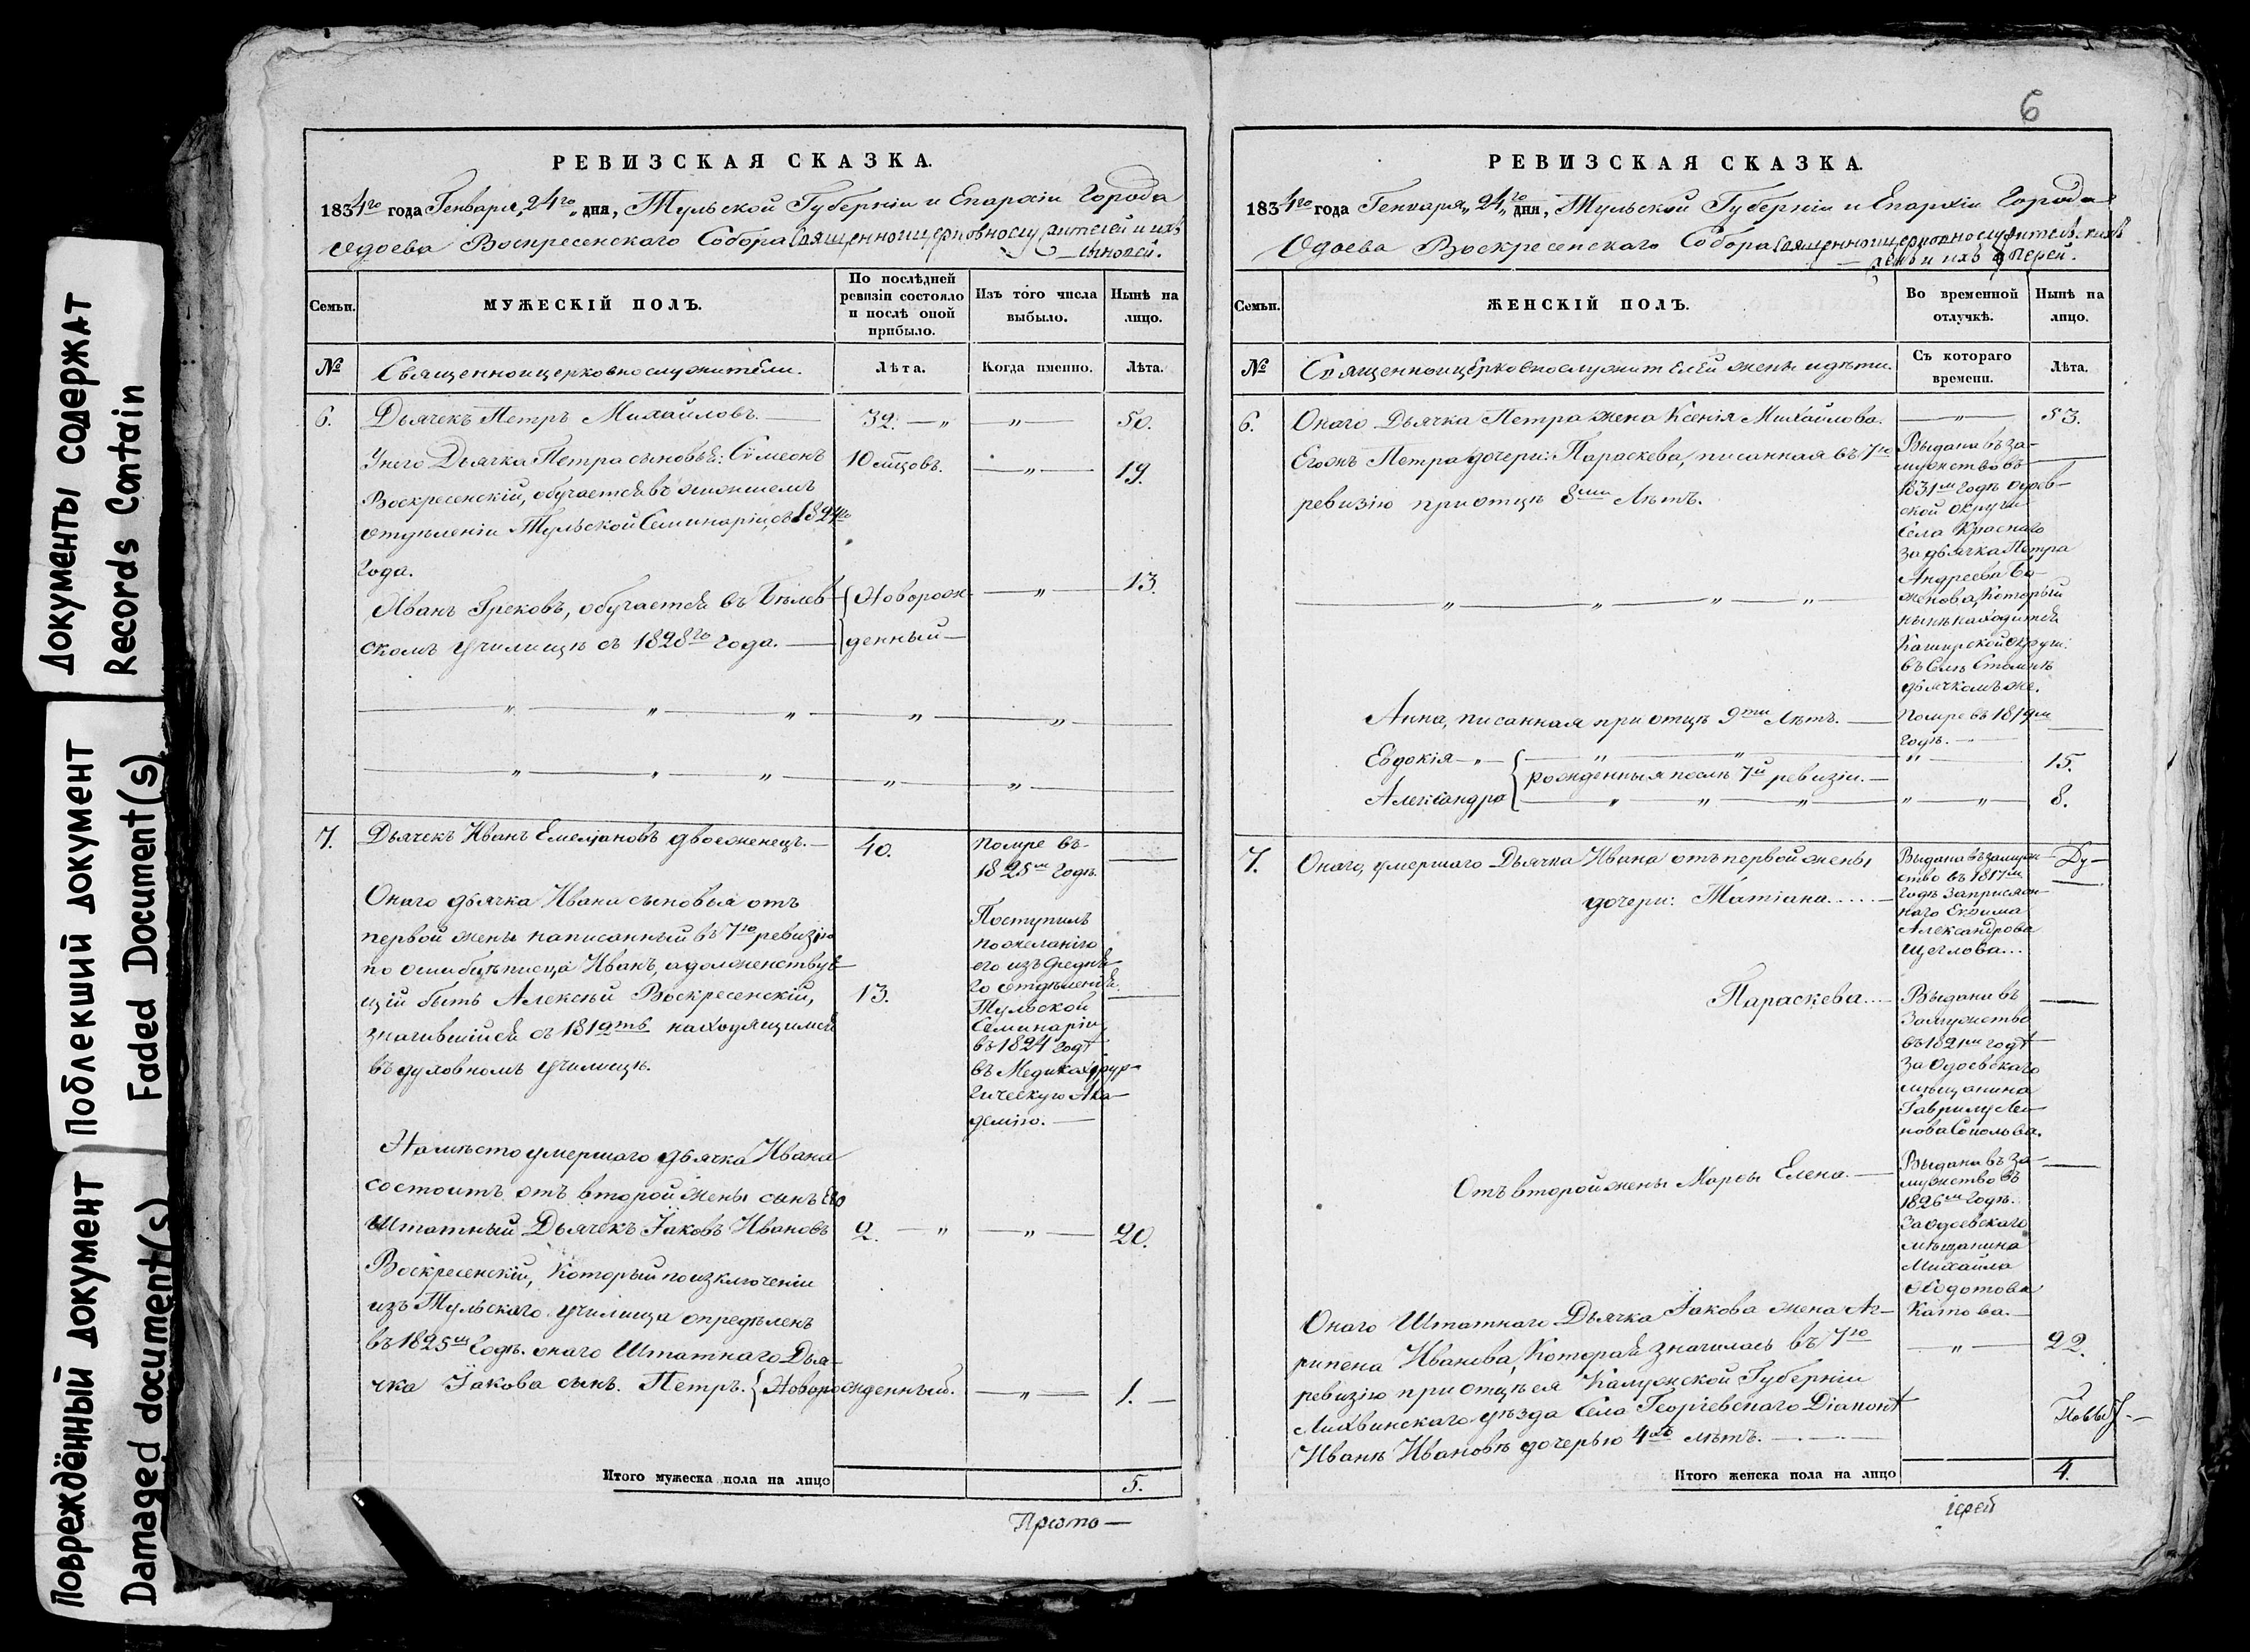 Документы содержат
Records Contain
Поблекший документ
Faded Document(s)
Повреждённый документ
Damaged document(s)
РЕВИЗСКАЯ СКАЗКА.
1834го года Генваря „24го„ дня, Тульской Губерніи и Епархіи Города
Одоева Воскресенскаго Собора Священноицерковнослужителей и ихъ
сыновей.
Семьи.
МУЖЕСКІЙ ПОЛЪ.
По послѣдней ревизіи состояло и послѣ оной прибыло.
Изъ того числа выбыло.
Нынѣ на лицо.
№
Священноицерковнослужители.
Лѣта.
Когда именно.
Лѣта.
6. Дьячекъ Петръ Михайловъ. — 32. — „ — „ — 50.
У него Дьячка Петра сыновья: Сѵмеонъ 10 мѣцовъ. — „ — 19.
Воскресенскій, обучается въ низшемъ
отдѣленіи Тульской Семинаріи, съ 1824го
года.
Иванъ Грековъ, обучается въ Бѣлев- Новорож- — „ — 13.
скомъ училищѣ съ 1828го года. — денный —
7. Дьячекъ Иванъ Емельяновъ двоеженецъ. — 40.
Помре въ
1825м годѣ.
Онаго дьячка Ивана сыновья отъ
первой жены написанный въ 7ю ревизію
по ошибкѣ писца Иванъ, а долженствую-
щій быть Алексѣй Воскресенскій, 13.
значившійся съ 1819то находящимся
въ духовномъ училищѣ.
Поступилъ
по желанію
его изъ средня-
го отдѣленія
Тульской
Семинаріи
въ 1824 годѣ
въ Медикохирур-
гическую Ака-
демію. —
На мѣсто умершаго дьячка Ивана
состоитъ отъ второй жены сынъ его
Штатный Дьячекъ Іаковъ Ивановъ 2. — „ — „ — 20.
Воскресенскій, который по изключеніи
изъ Тульскаго училища опредѣленъ
въ 1825м годѣ. онаго Штатнаго Дья-
чка Іакова сынъ. Петръ. Новорожденный. — „ — 1. —
Итого мужеска пола на лицо 5.
Прото —
6
РЕВИЗСКАЯ СКАЗКА.
1834го года Генваря „24го„ дня, Тульской Губерніи и Епархіи Города
Одоева Воскресенскаго Собора Священноицерковнослужителей ихъ
женъ и ихъ дщерей.
Семьи.
ЖЕНСКІЙ ПОЛЪ.
Во временной отлучкѣ.
Нынѣ на лицо.
№
Священноицерковнослужителей жены и дѣти.
Съ котораго времени.
Лѣта.
6. Онаго Дьячка Петра жена Ксенія Михайлова. — „ — 53.
Егожъ Петра дочери: Параскева, писанная въ 7ю
ревизію при отцѣ 8ми Лѣтъ.
Выдана въ за-
мужство въ
1831м годѣ
ской округи
Села Краснаго
за дьячка Петра
Андреева Бо-
женова, который
нынѣ находится
Каширской округи
въ Селѣ
дьячкомъ же.
Анна, писанная при отцѣ 9ти Лѣтъ. —
Помре въ 1819м
годѣ. —
Евдокія — „ — „ — 15.
рожденныя послѣ 7й ревизіи. —
Александра — „ — „ — 8.
7. Онаго, умершаго Дьячка Ивана отъ первой жены
дочери: Татіана.....
Выдана въ замуж-
ство въ 1817м
годѣ за присяж-
наго Ефима
Александрова
Щеглова...
Ду —
Параскева... —
Выдана въ
Замужство
въ 1821м годѣ
за Одоевскаго
мѣщанина
Гаврилу Лео-
нова Соколова.
Отъ второй жены Марѳы Елена. —
Выдана въ за-
мужство въ
1826м годѣ.
За Одоевскаго
мѣщанина
Михаила
Катова. —
Онаго Штатнаго Дьячка Іакова жена Аг-
рипена Иванова, Которая значилась въ 7ю — „ — 22.
ревизію при отцѣ ея Калужской Губерніи
Лихвинскаго уѣзда Села Георгіевскаго Діаконѣ
Иванѣ Ивановѣ дочерью 4хъ лѣтъ. —
Итого женска пола на лицо 4.
іерей